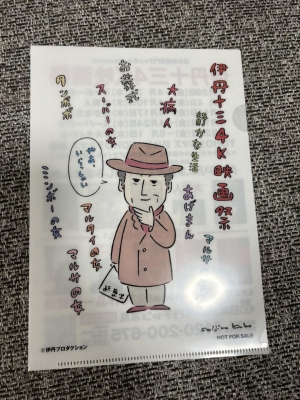 伊丹十三4K映画祭
お葬式
タンポポ
スーパーの女
★病人
静かな生活
やあ、
いらっしゃい
あげまん
マルサ
ミンボーの女
マルタイの女
マルサの女
NOT FOR SALE
※伊丹プロダクション